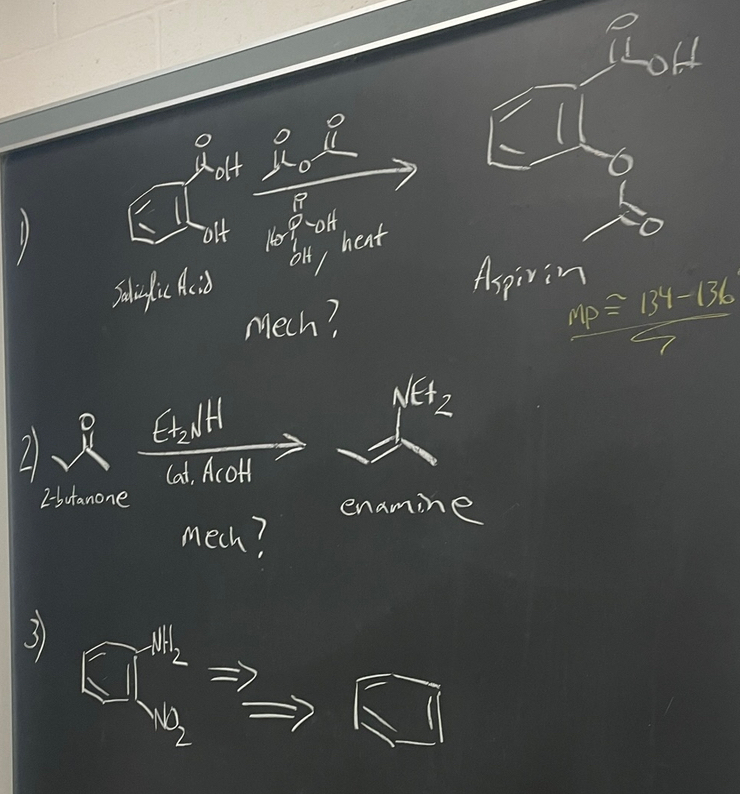 1)
O
OH
OH
Salicylic Acid
O O
O
O
HO-P-OH
OH, heat
Mech?
O
OH
O
O
Aspirin
mp ≅ 134-136°
2)
O
2-butanone
Et2NH
Cat. AcOH
Mech?
NEt2
enamine
3)
NH2
NO2
⇒
⇒